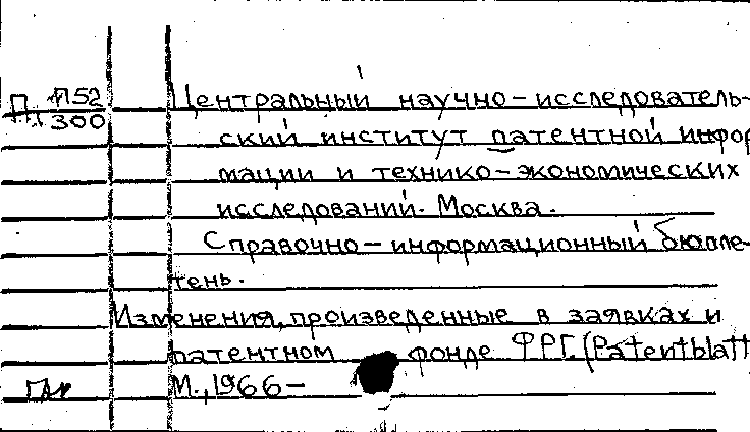 П 752
300
Центральный научно-исследователь-
ский институт патентной инфор
мации и технико-экономических
исследований. Москва.
Справочно-информационный бюлле-
тень.
Изменения, произведенные в заявках и
патентном фонде ФРГ. (Patentblatt
М., 1966-